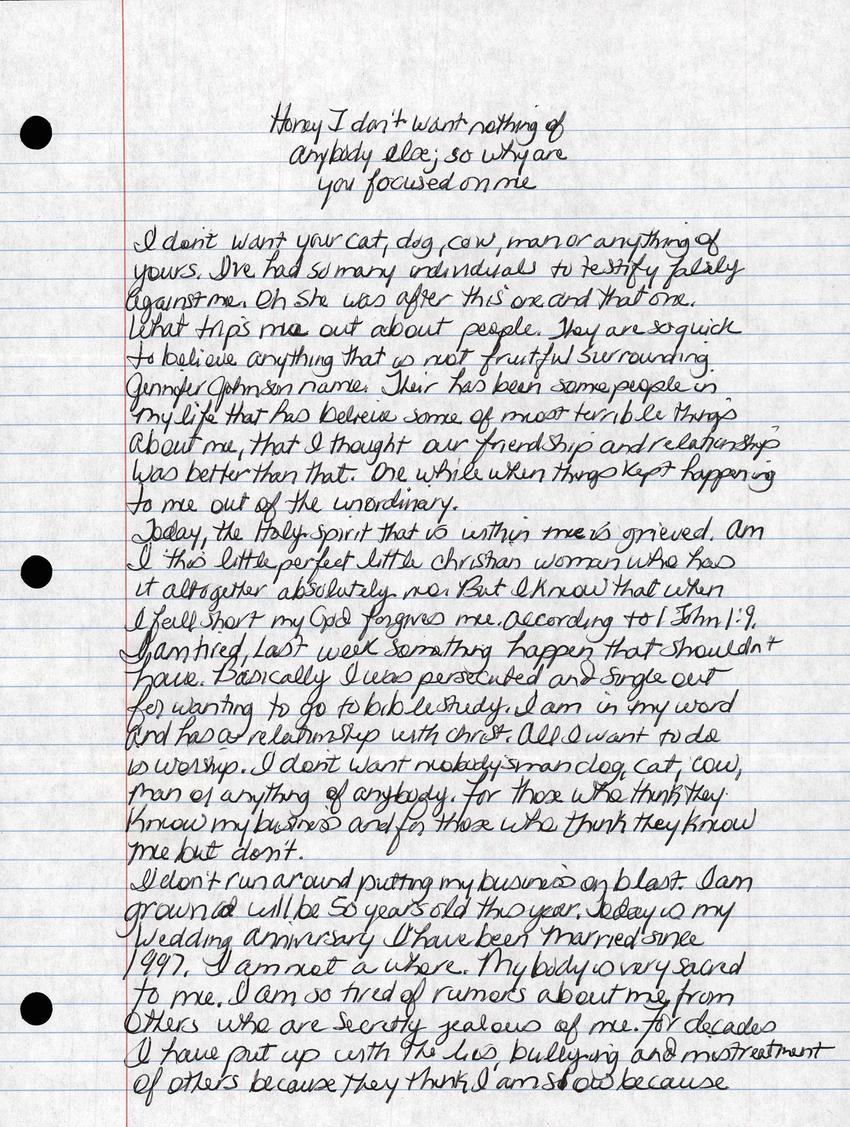 Honey I don't want nothing of
anybody else; so why are
you focused on me
I don't want your cat, dog, cow, man or anything of
yours. I've had so many individuals to testify falsly
against me. Oh She was after this one and that one.
What trip's me out about people. They are so quick
to believe anything that is not fruitful surrounding
Jennifer Johnson name. Their has been some people in
my life that has believe some of most terrible things
about me, that I thought our friendship and relationship
was better than that. One while when things kept happening
to me out of the unordinary.
Today, the Holy spirit that is within me is grieved. Am
I this little perfect little christian woman who has
it altogether absolutely no. But I know that when
I fall short my God forgives me. according to 1 John 1:9.
I am tired, Last week something happen that shouldn't
have. Basically I was persecuted and single out
for wanting to go to bible study. I am in my word
and has a relationship with christ. All I want to do
is worship. I don't want nobody's man dog, cat, cow,
man or anything of anybody. For those who think they
know my business and for those who think they know
me but don't.
I don't run around putting my business on blast. I am
grown will be 50 years old this year. Today is my
Wedding anniversary I have been married since
1997. I am not a whore. My body is very sacred
to me. I am so tired of rumors about me, from
others who are secretly jealous of me. For decades
I have put up with the lies, bullying and mistreatment
of others because they think I am slow because